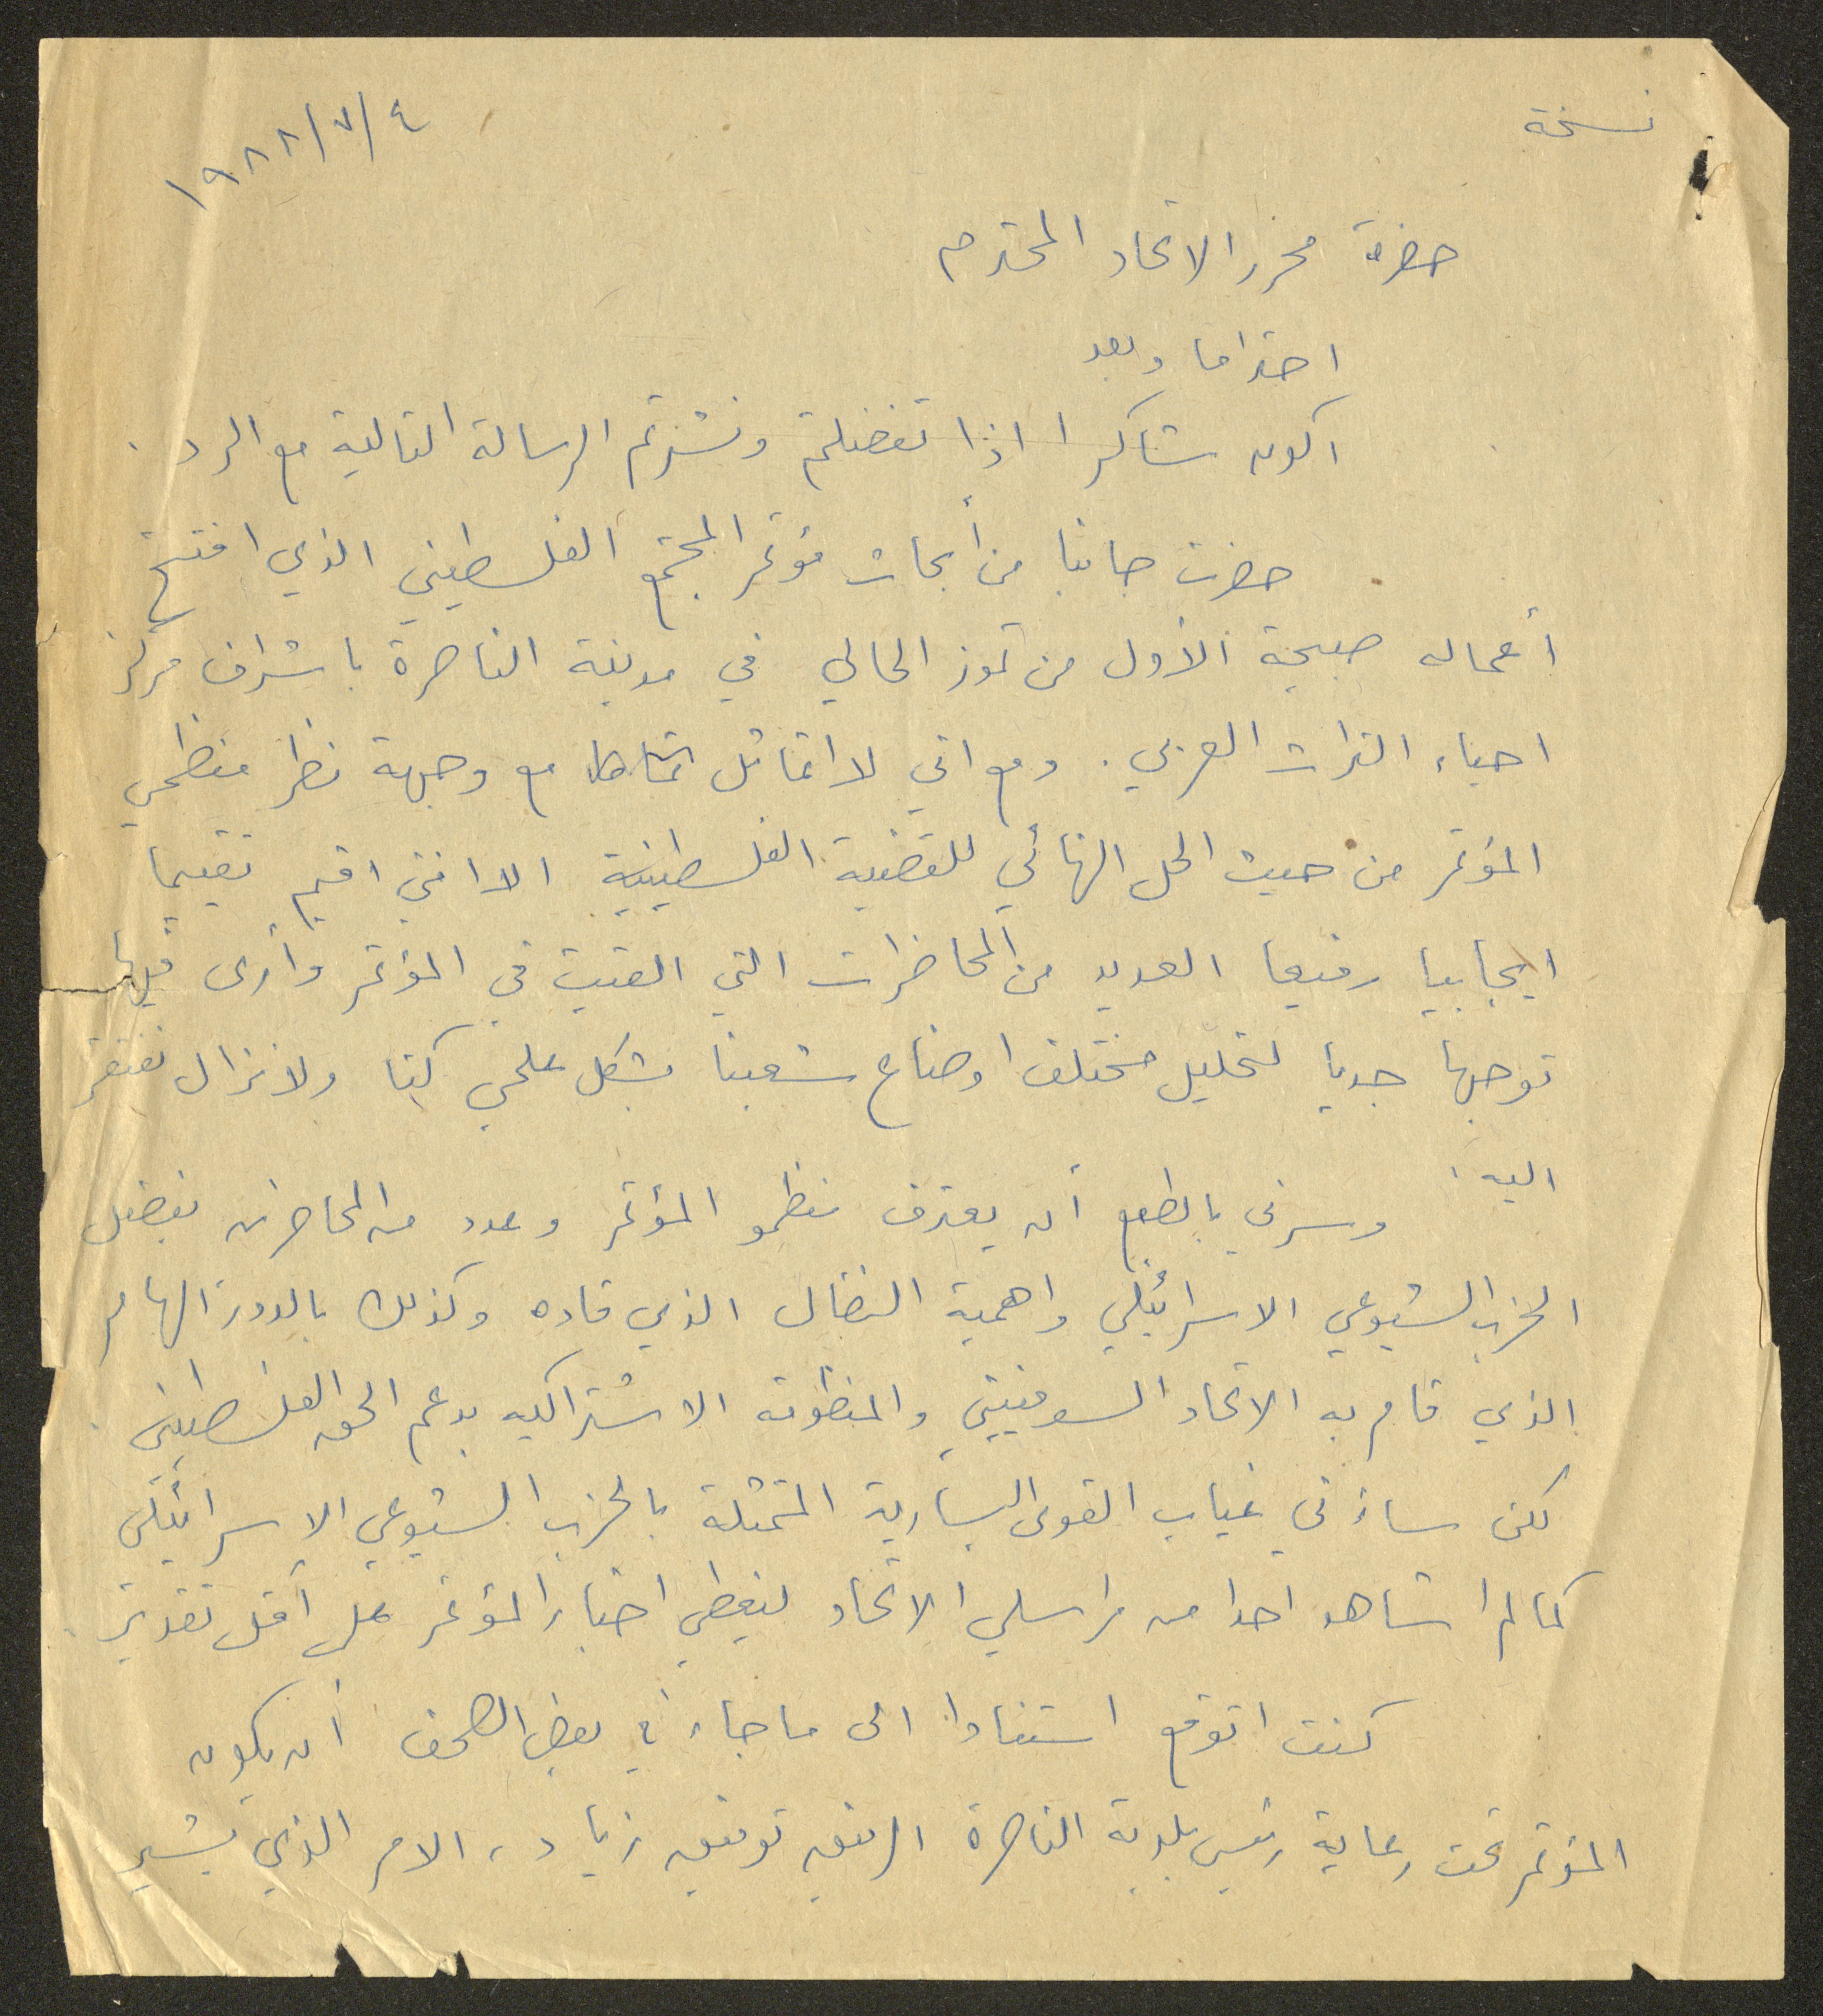 نسخة
١٩٨٨/٧/٤
حضرة محرر الاتحاد المحترم
احتراما وبعد
اكون شاكرا اذا تفضلتم ونشرتم الرسالة التالية مع الرد .
حضرت جانبا من أبحاث مؤتمر المجتمع الفلسطيني الذي افتتح
أعماله صبيحة الأول من تموز الحالي في مدينة الناصرة باشراف مركز
احياء التراث العربي . ومع اني لا اتماثل تماما مع وجهة نظر منظمي
المؤتمر من حيث الحل النهائي للقضية الفلسطينية الا انني اقيم تقييما
ايجابيا رفيعا العديد من المحاضرات التي القيت في المؤتمر وأرى فيها
توجها جديا لتحليل مختلف اوضاع شعبنا بشكل علمي كنا ولا نزال نفتقر
اليه .
وسرني بالطبع أن يعترف منظمو المؤتمر وعدد من المحاضرين بفضل
الحزب الشيوعي الاسرائيلي واهمية النضال الذي قاده وكذلك بالدور الهام
الذي قام به الاتحاد السوفييتي والمنظومة الاشتراكيه بدعم الحق الفلسطيني .
لكن ساءني غياب القوى اليسارية المتمثلة بالحزب الشيوعي الاسرائيلي
كما لم اشاهد احدا من مراسلي الاتحاد ليغطي اخبار المؤتمر على أقل تقدير .
كنت اتوقع استنادا الى ما جاء في بعض الصحف أن يكون
المؤتمر تحت رعاية رئيس بلدية الناصرة الرفيق توفيق زياد ، الامر الذي يشير